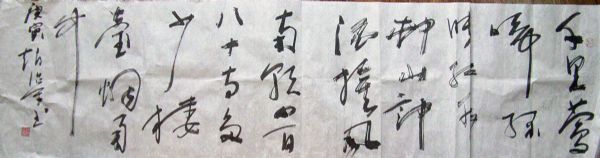 千里莺
啼绿
映红水
村山郭
酒旗风
南朝四百
八十寺多
少楼
臺烟雨
中
庚寅 书